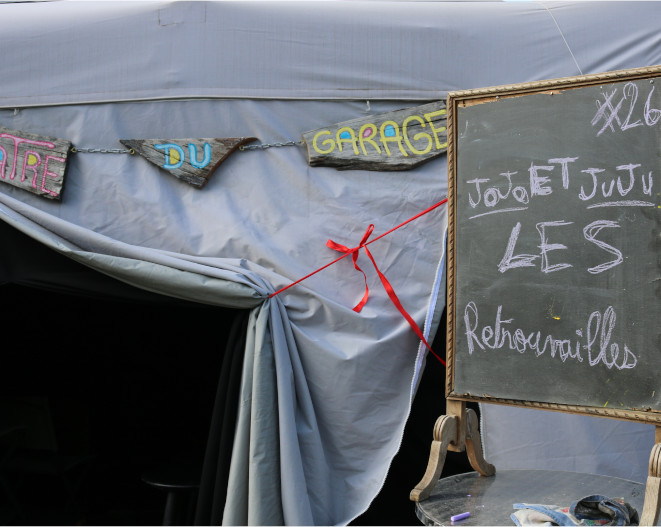 ATRE DU GARAGE
X26
JOJO ET JUJU
LES
Retrouvailles